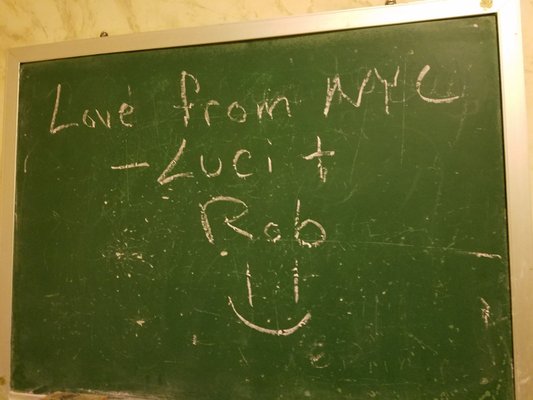 Love from NYC
- Luci +
Rob